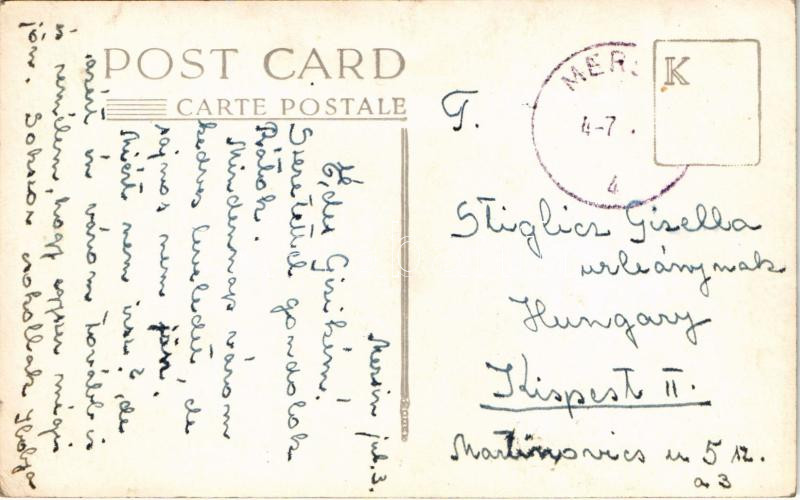 POST CARD
CARTE POSTALE
Mersin jul. 3.
Édes Gizikém!
Szeretettel gondolok
Rátok.
Mindennap várom
kedves leveledet, de
sajnos nem jön.
Miért nem írsz?, de
azért én várom továbbis
s remélem, hogy egyszer mégis
jön. Sokszor csókollak
MER
4-7.
4
K
T.
Stiglicz Gisella
urleánynak
Hungary
Kispest II.
Martinovics u 5 sz.
a 3